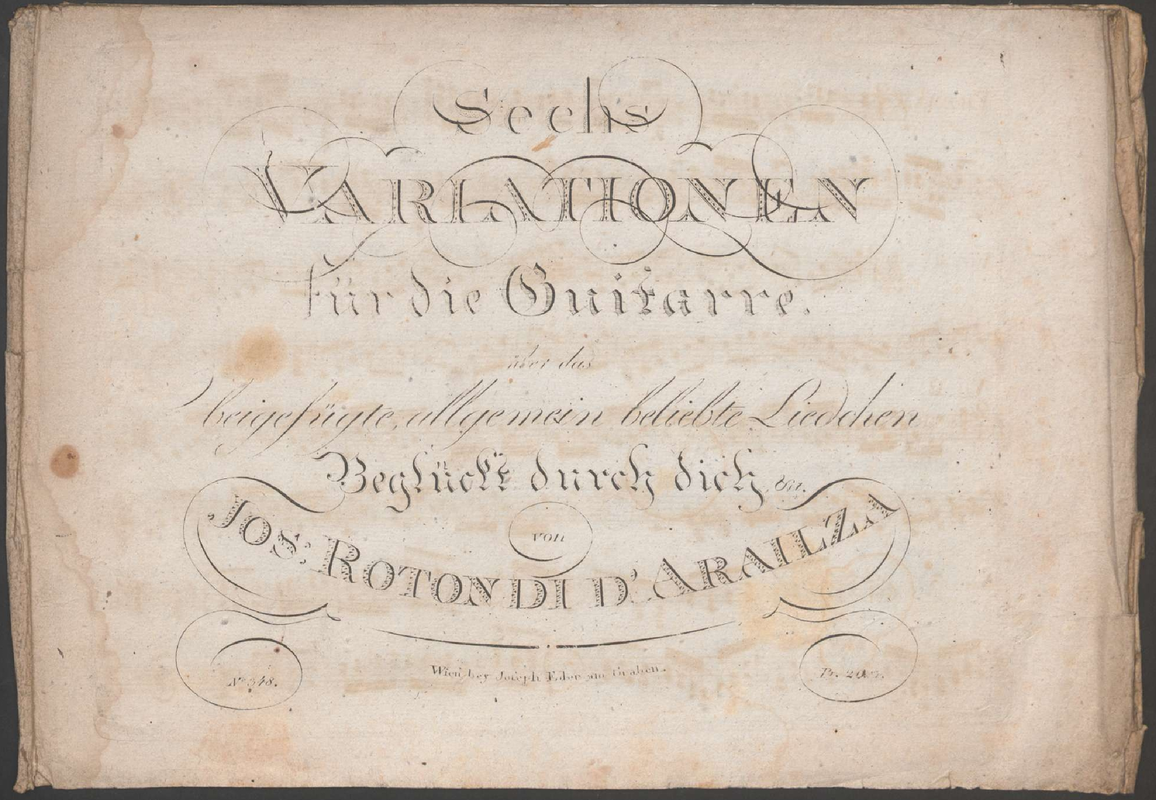 Sechs
VARIATIONEN
für die Guitarre.
über das
beigefügte, allgemein beliebte Liedchen
Beglückt durch dich &c.
von
JOS: ROTONDI D'ARAILZA
Wien bey Joseph Eder am Graben.
No 348.
Pr. 20 x.